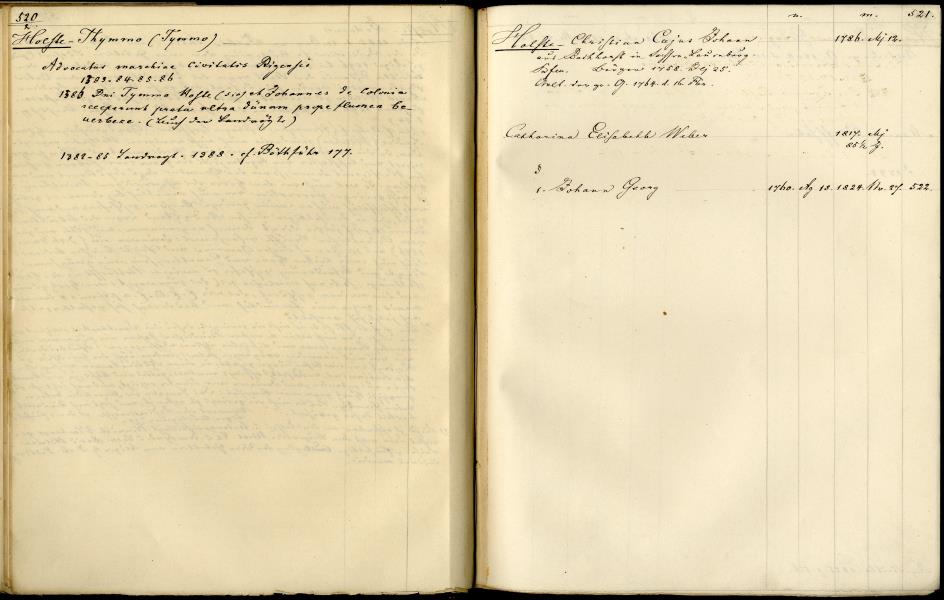 520
Holste - Thymmo (Tymmo)
Advocatus marchiae civitatis Rigensis
1383-84-85-86
1386 Dni Tymmo Holste (sic) et Johannes de Colonia
receperunt prata ultra dunam prope flumen be-
uerbeke. (Buch der Landvögte)
1382-85 Landvogt. 1388. cf. Böthführ 177.
n. m. 521.
Holste - Christian Cajus Johann 1786. Mj 12.
aus in Lauenburg.
Bürger 1758. 25.
Aelt. der gr. G. 1764. d. 16 Fbr.
Catharina Elisabeth Weber 1817. Mj
85 ½ J.
§
1. Johann Georg 1760. Ag 18. 1824. Nov. 27. 522.